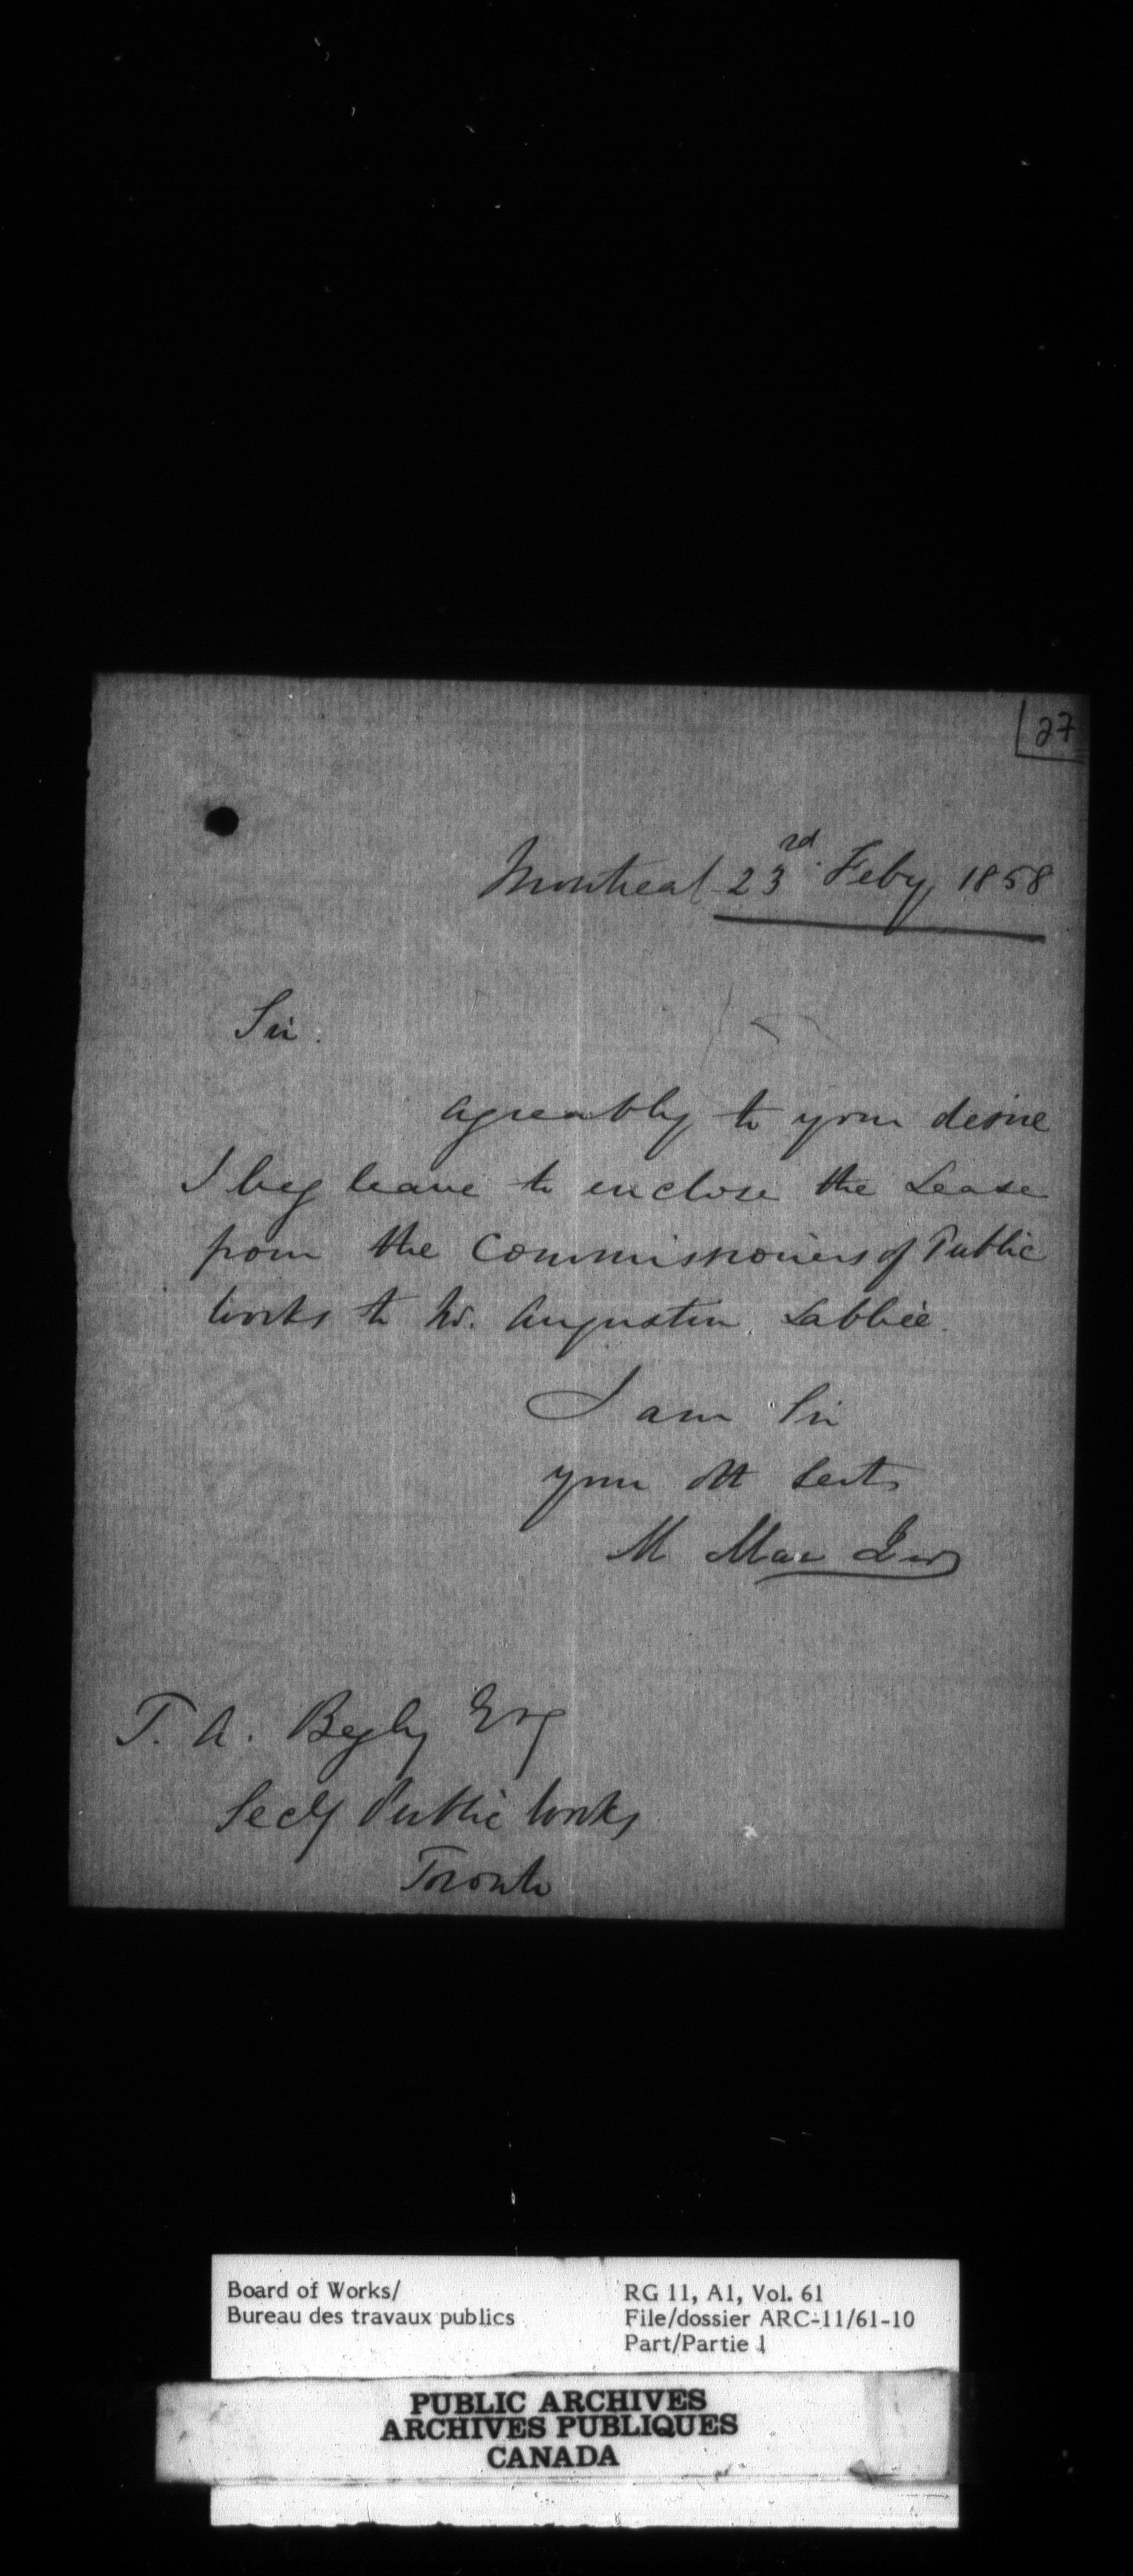 27
Montreal 23rd Feby 1858
Sir.
agreably to your desire
I beg leave to enclose the Lease
from the Commissioners of Public
Works to Mr. Augustin Labbée.
I am Sir
your Obt Sevt
M Mac
T. A. Begly Esq
Secy Public Works
Toronto
Board of Works/
Bureau des travaux publics
RG 11, A1, Vol. 61
File/dossier ARC-11/61-10
Part/Partie 1
PUBLIC ARCHIVES
ARCHIVES PUBLIQUES
CANADA